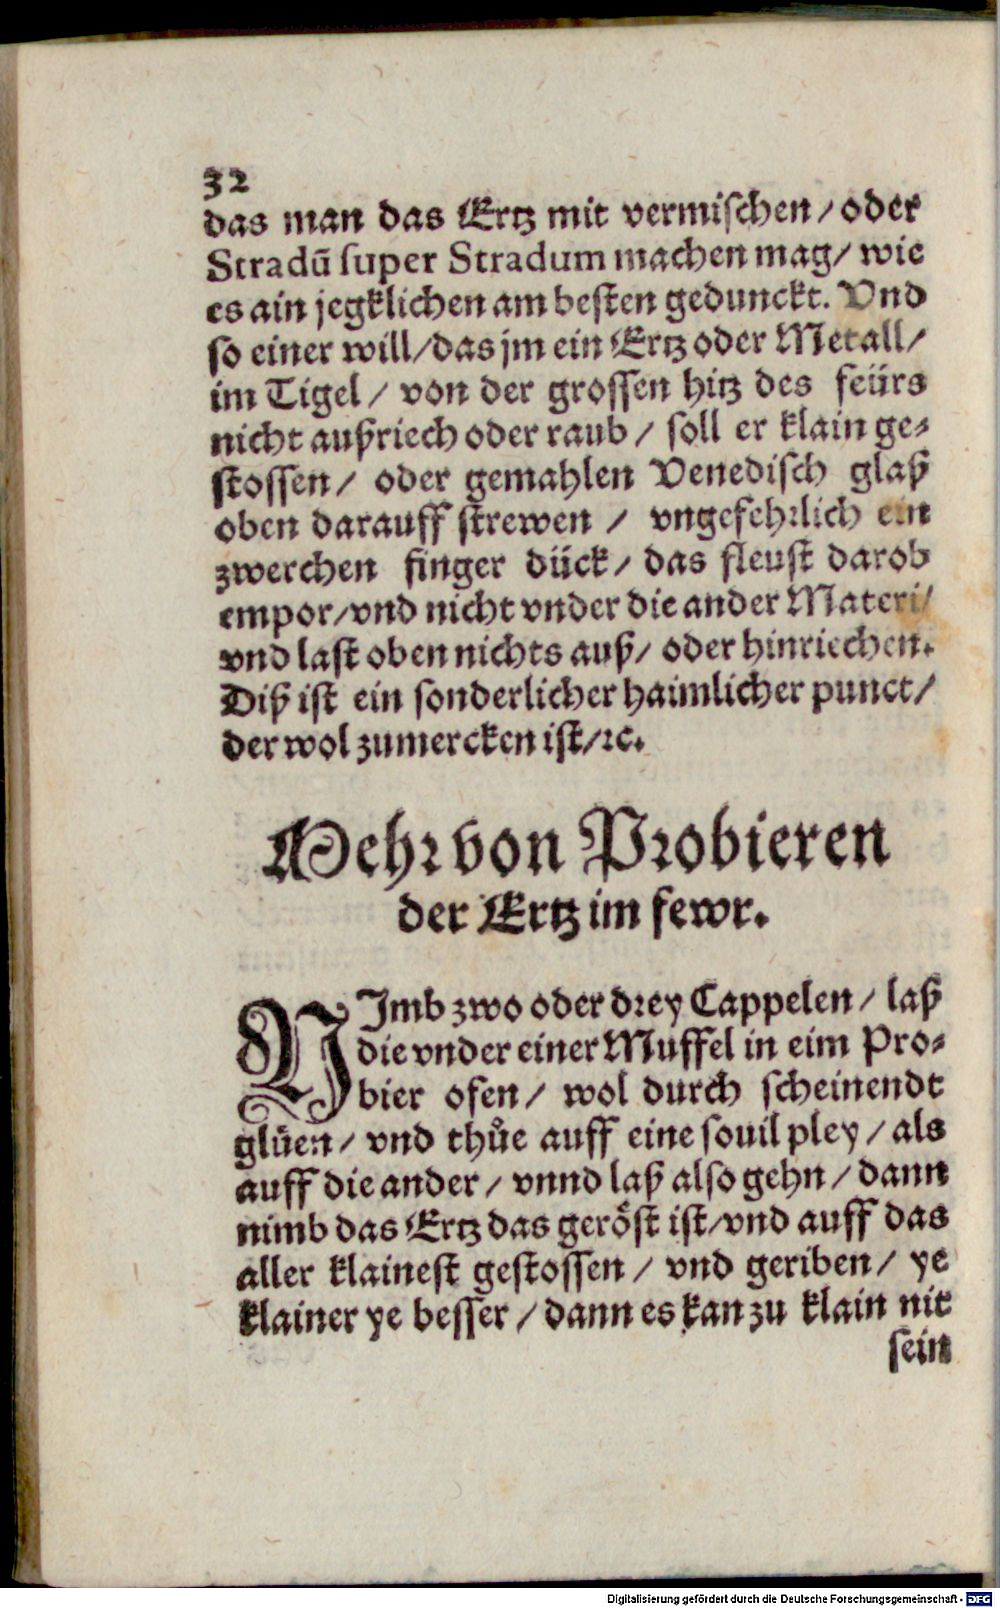 32
das man das Ertz mit vermischen / oder
Stradū super Stradum machen mag / wie
es ain jegklichen am besten gedunckt. Vnd
so einer will / das jm ein Ertz oder Metall /
im Tigel / von der grossen hitz des feürs
nicht außriech oder raub / soll er klain ge-
stossen / oder gemahlen Venedisch glaß
oben darauff strewen / vngefehrlich ein
zwerchen finger dück / das fleust darob
empor / vnd nicht vnder die ander Materi /
vnd last oben nichts auß / oder hinriechen.
Diß ist ein sonderlicher haimlicher punct /
der wol zumercken ist / ꝛc.
Mehr von Probieren
der Ertz im fewr.
NImb zwo oder drey Cappelen / laß
die vnder einer Muffel in eim Pro-
bier ofen / wol durch scheinendt
glüen / vnd thůe auff eine souil pley / als
auff die ander / vnnd laß also gehn / dann
nimb das Ertz das geröst ist / vnd auff das
aller klainest gestossen / vnd geriben / ye
klainer ye besser / dann es kan zu klain nit
sein
Digitalisierung gefördert durch die Deutsche Forschungsgemeinschaft - DFG